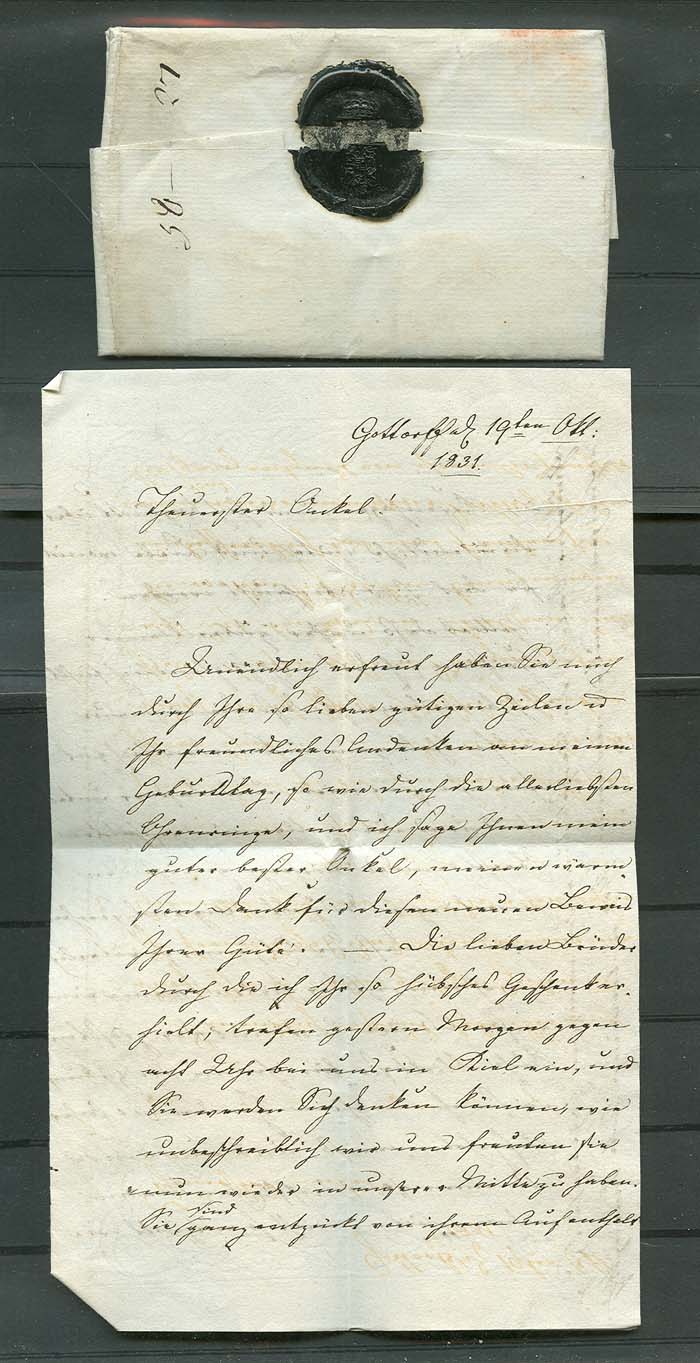 Gottorff d 19ten Okt:
1831.
Theuerster Onkel!
Unendlich erfreut haben Sie mich
durch Ihre so lieben gütigen Zeilen u
Ihr freundliches Andenken an meinen
Geburtstag, so wie durch die allerliebsten
Ohrenringe, und ich sage Ihnen mein
guter bester Onkel, meinen wärm-
sten Dank für diesen neuen Beweis
Ihrer Güte. — Die lieben Brüder
durch die ich Ihr so hübsches Geschenk er-
hielt, trafen gestern Morgen gegen
acht Uhr bei uns in Kiel ein, und
Sie werden Sich denken können, wie
unbeschreiblich wir uns freuten sie
nun wieder in unserer Mitte zu haben.
Sie sind ganz entzückt von ihrem Aufenthalt